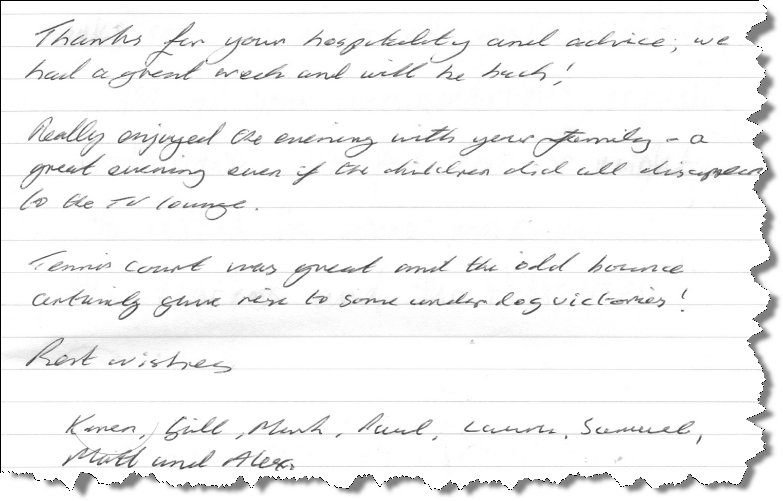 Thanks for your hospitality and advice, we
had a great week and will be back!
Really enjoyed the evening with your family - a
great evening even if the children did all disappear
to the TV lounge.
Tennis court was great and the odd bounce
certainly gave rise to some underdog victories!
Best wishes
Karen, Gill, Mark, Paul, Laura, Samuel,
Matt and Alex.